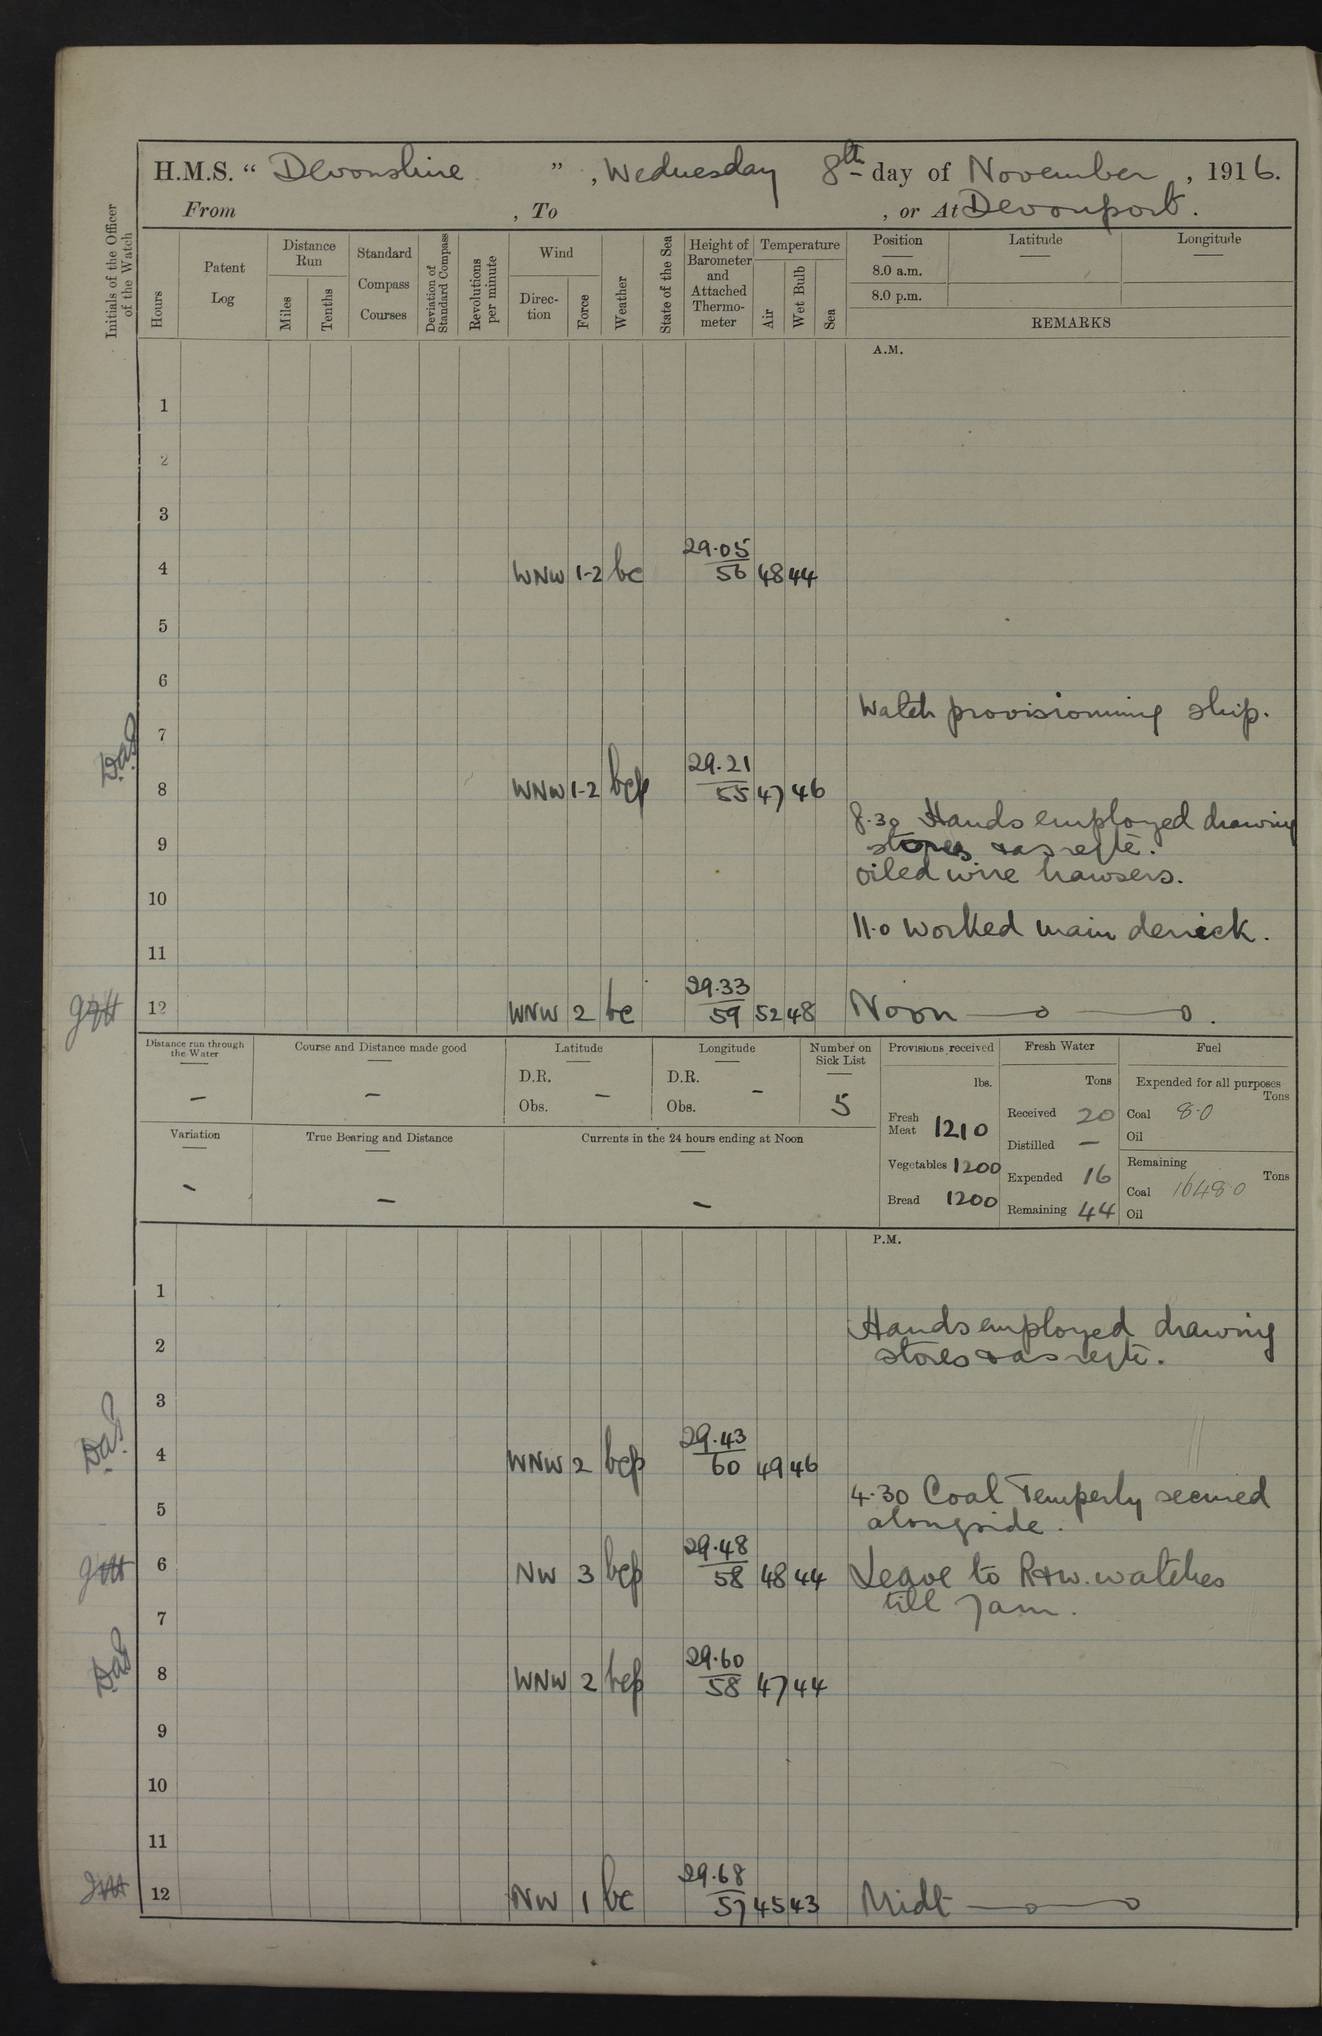 H.M.S. “ Devonshire ” , Wednesday 8th day of November , 1916.
From , To , or At Devonport.
Initials of the Officer of the Watch
Hours
Patent Log
Distance Run
Miles
Tenths
Standard Compass Courses
Deviation of Standard Compass
Revolutions per minute
Wind
Direc-tion
Force
Weather
State of the Sea
Height of Barometer and Attached Thermo-meter
Temperature
Air
Wet Bulb
Sea
Position
8.0 a.m.
8.0 p.m.
Latitude
Longitude
REMARKS
A.M.
1
2
3
4 WNW 1-2 bc 29.05 56 48 44
5
6
Watch provisioning ship.
7
8 WNW 1-2 bcp 29.21 55 47 46
8.30 Hands employed drawing
9 stores & as reqte.
oiled wire hawsers.
10
11.0 Worked main derrick.
11
12 WNW 2 bc 29.33 59 52 48 Noon
Distance run through the Water
–
Course and Distance made good
–
Latitude
D.R.
Obs. –
Longitude
D.R.
Obs. –
Number on Sick List
5
Variation
–
True Bearing and Distance
–
Currents in the 24 hours ending at Noon
–
Provisions received
lbs.
Fresh Meat 1210
Vegetables 1200
Bread 1200
Fresh Water
Tons
Received 20
Distilled –
Expended 16
Remaining 44
Fuel
Expended for all purposes
Tons
Coal 8.0
Oil
Remaining
Tons
Coal 1648.0
Oil
P.M.
1
Hands employed drawing
2 stores & as reqte.
3
4 WNW 2 bcp 29.43 60 49 46
4.30 Coal Temperly secured
5 alongside.
6 NW 3 bcp 29.48 58 48 44 Leave to R & W. watches
till 7am.
7
8 WNW 2 bcp 29.60 58 47 44
9
10
11
12 NW 1 bc 29.68 57 45 43 Midt